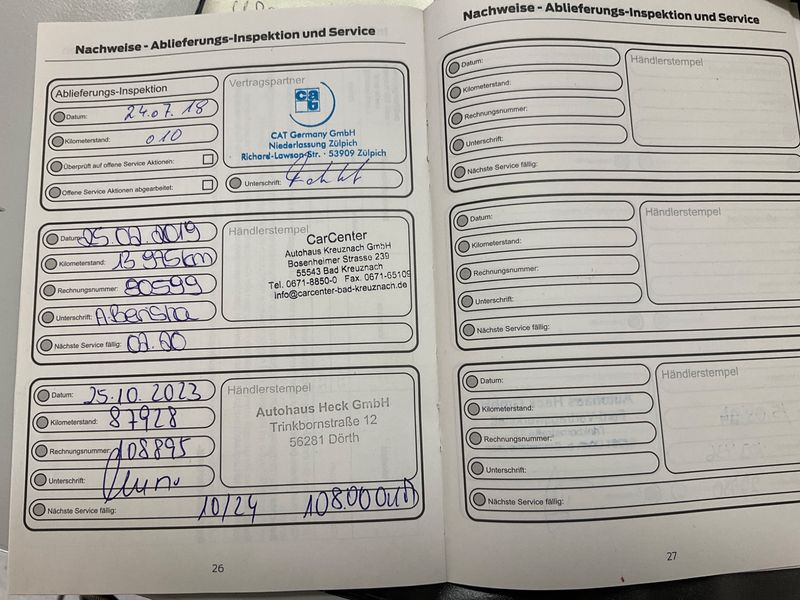 Nachweise - Ablieferungs-Inspektion und Service
Ablieferungs-Inspektion
Datum: 24.07.18
Kilometerstand: 010
Überprüft auf offene Service Aktionen:
Offene Service Aktionen abgearbeitet:
Vertragspartner
cat
CAT Germany GmbH
Niederlassung Zülpich
Richard-Lawson-Str. · 53909 Zülpich
Unterschrift:
Datum: 25.07.2019
Kilometerstand: 13 975km
Rechnungsnummer: 80599
Unterschrift:
Nächste Service fällig: 07.20
Händlerstempel
CarCenter
Autohaus Kreuznach GmbH
Bosenheimer Strasse 239
55543 Bad Kreuznach
Tel. 0671-8850-0 Fax. 0671-65109
info@carcenter-bad-kreuznach.de
Datum: 25.10.2023
Kilometerstand: 87928
Rechnungsnummer: 108895
Unterschrift:
Nächste Service fällig: 10/24 108.000
Händlerstempel
Autohaus Heck GmbH
Trinkbornstraße 12
56281 Dörth
26
Nachweise - Ablieferungs-Inspektion und Service
Datum:
Kilometerstand:
Rechnungsnummer:
Unterschrift:
Nächste Service fällig:
Händlerstempel
Datum:
Kilometerstand:
Rechnungsnummer:
Unterschrift:
Nächste Service fällig:
Händlerstempel
Datum:
Kilometerstand:
Rechnungsnummer:
Unterschrift:
Nächste Service fällig:
Händlerstempel
27